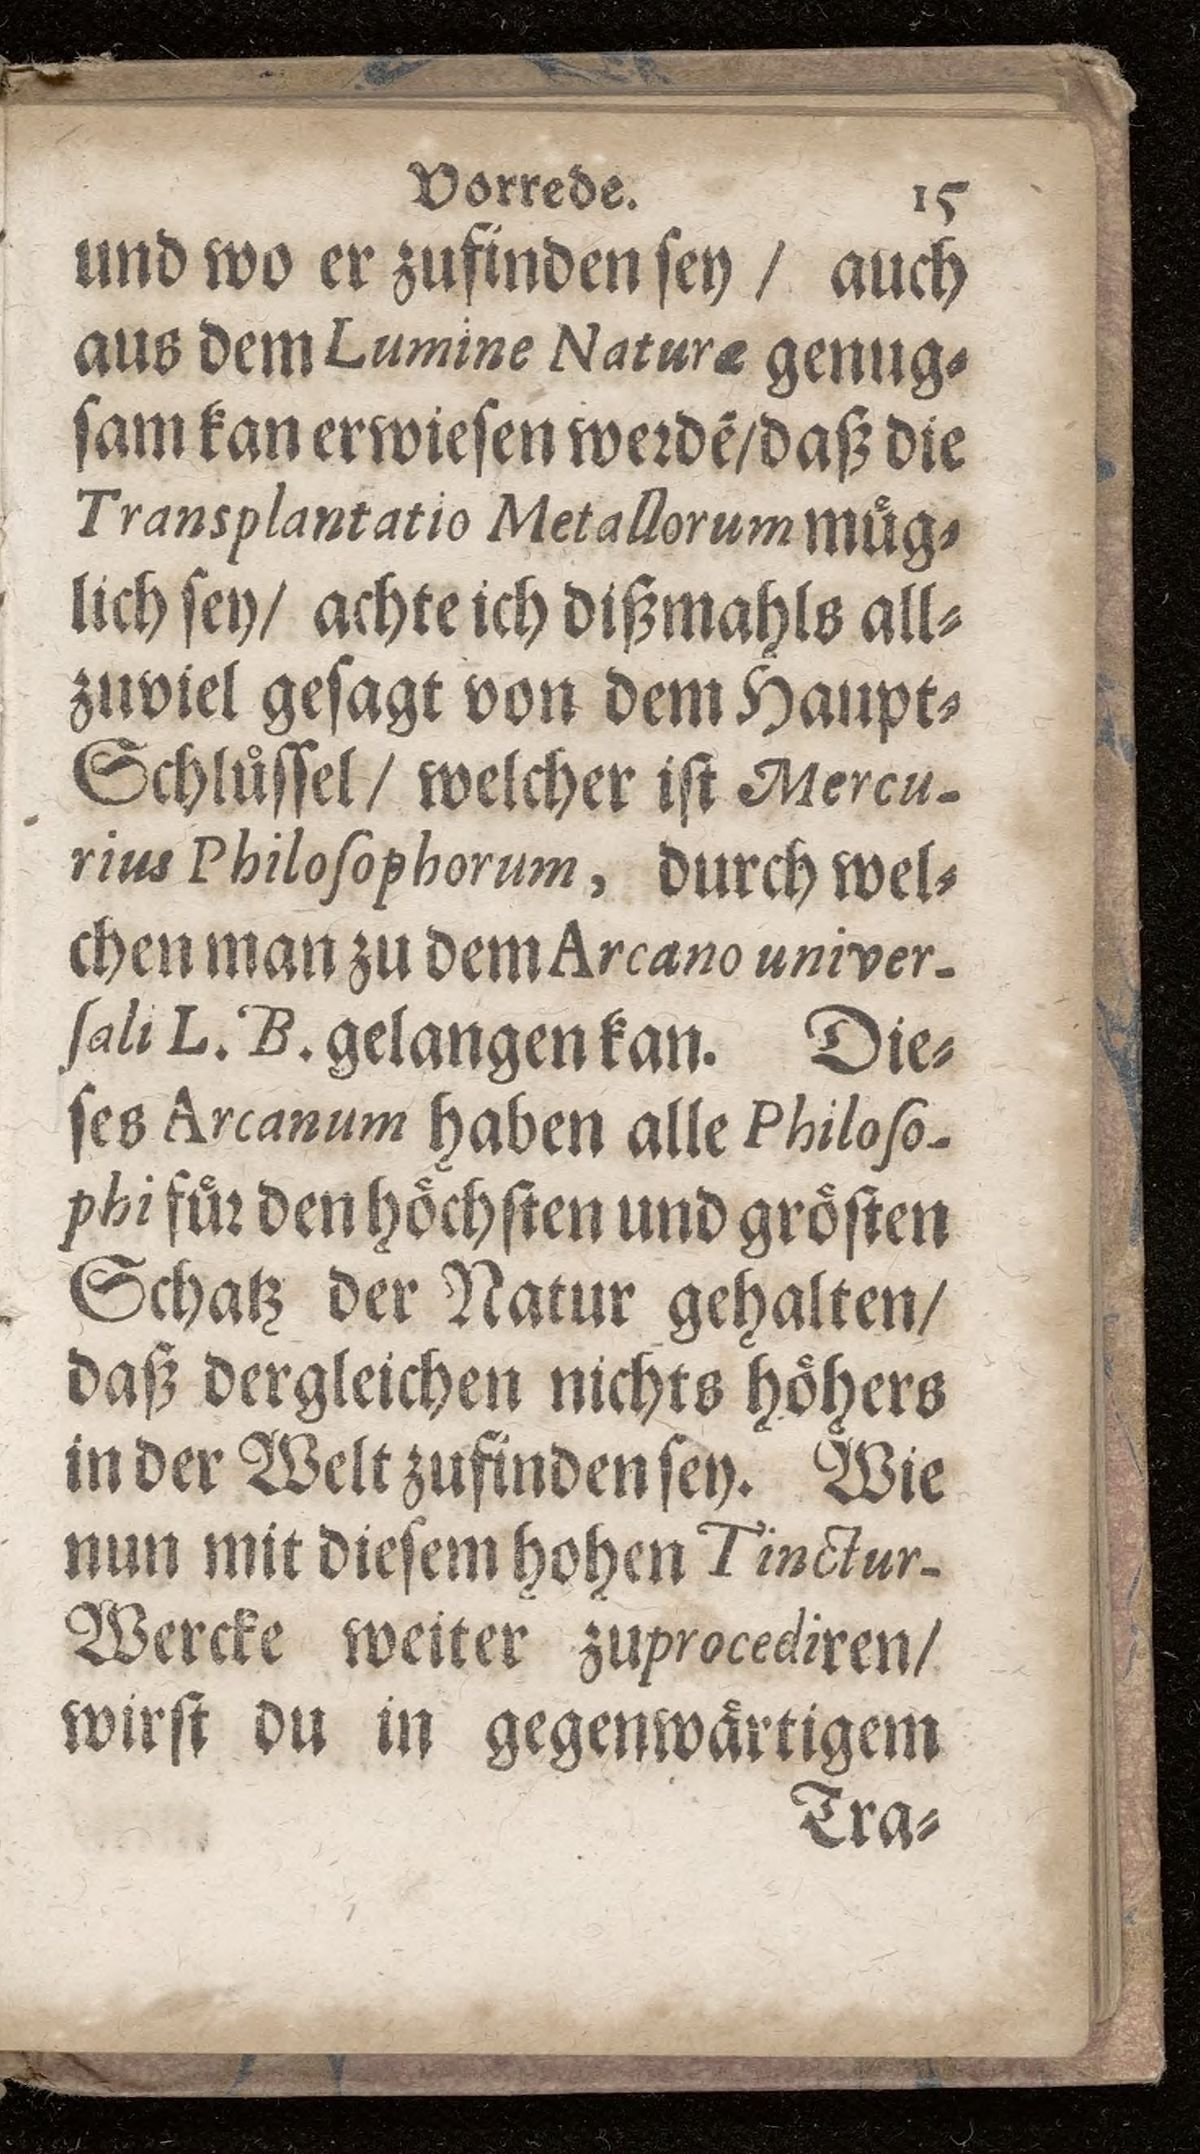 Vorrede. 15
und wo er zufinden ſey / auch
aus dem Lumine Naturæ genug⸗
ſam kan erwieſen weꝛdẽ/daß die
Transplantatio Metallorum muͤg⸗
lich ſey/ achte ich dißmahls all⸗
zuviel geſagt von dem Haupt⸗
Schluͤſſel/ welcher iſt Mercu-
rius Philoſophorum, durch wel⸗
chen man zu dem Arcano univer-
ſali L. B. gelangen kan. Die⸗
ſes Arcanum haben alle Philoſo-
phi fuͤꝛ den hoͤchſten und groͤſten
Schatz der Natur gehalten/
daß dergleichen nichts hoͤhers
in der Welt zufinden ſey. Wie
nun mit dieſem hohen Tinctur-
Wercke weiter zuprocediren/
wirſt du in gegenwaͤrtigem
Tra⸗